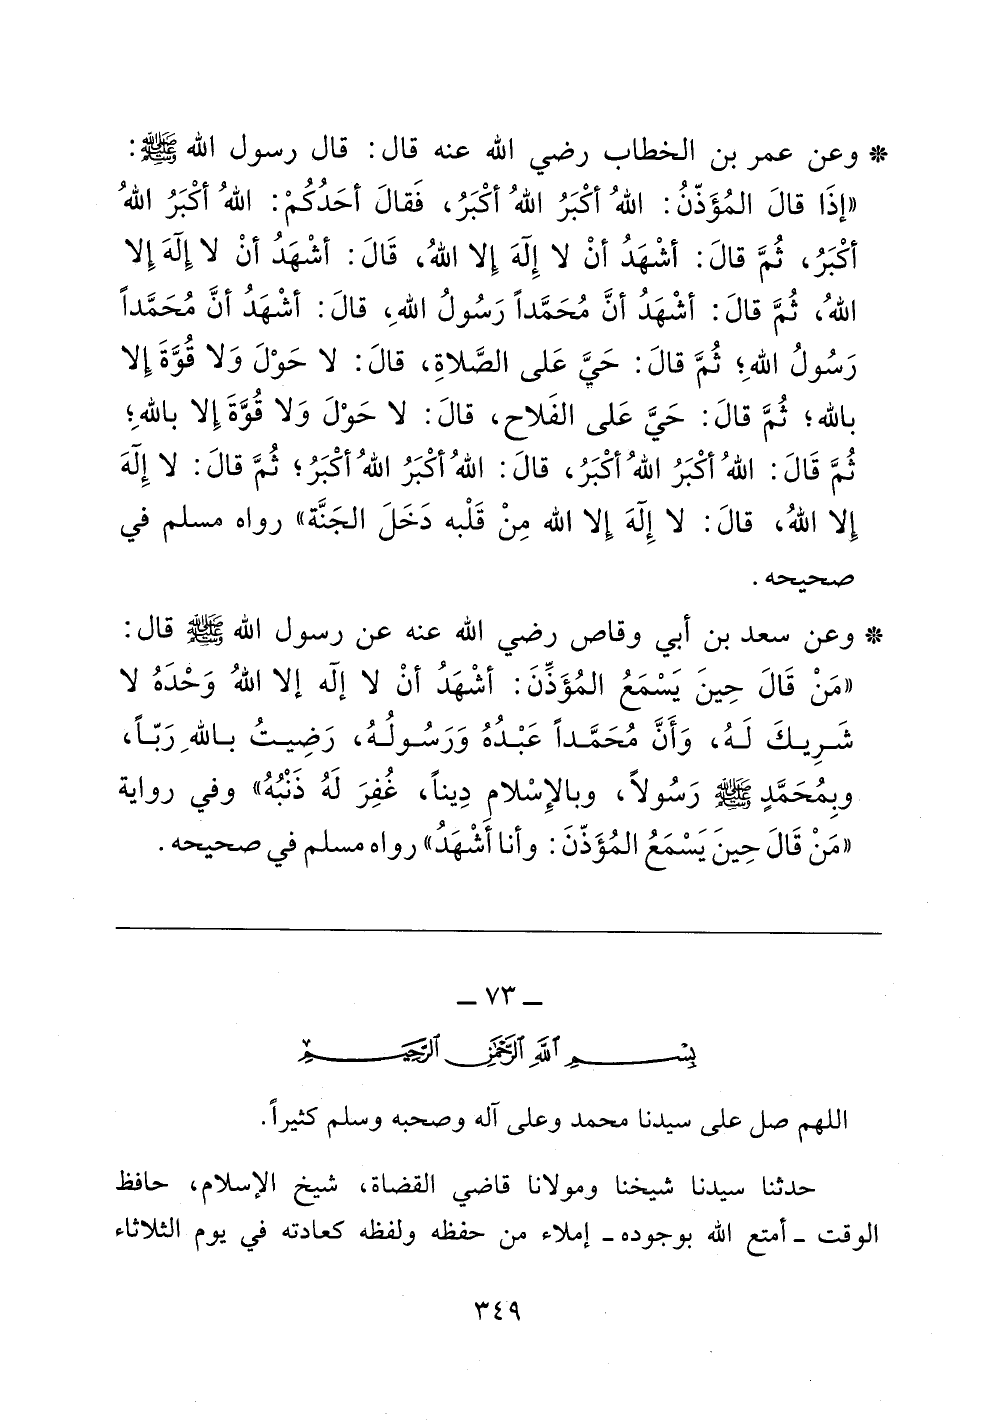 * وعن عمر بن الخطاب رضي الله عنه قال: قال رسول الله ﷺ:
«إذَا قالَ المُؤَذّنُ: اللهُ أكْبَرُ اللهُ أكْبَرُ، فَقالَ أحَدُكُمْ: اللهُ أكْبَرُ اللهُ
أكْبَرُ، ثُمَّ قالَ: أشْهَدُ أنْ لا إلَهَ إلا اللهُ، قَالَ: أشْهَدُ أنْ لا إلَهَ إلا
اللهُ، ثُمَّ قالَ: أشْهَدُ أنَّ مُحَمَّداً رَسُولُ اللهِ، قالَ: أشْهَدُ أنَّ مُحَمَّداً
رَسُولُ اللهِ؛ ثُمَّ قالَ: حَيَّ عَلى الصَّلاةِ، قالَ: لا حَوْلَ وَلا قُوَّةَ إلا
بالله؛ ثُمَّ قالَ: حَيَّ عَلى الفَلاح، قالَ: لا حَوْلَ وَلا قُوَّةَ إلا باللهِ؛
ثُمَّ قَالَ: اللهُ أكْبَرُ اللهُ أكْبَرُ، قالَ: اللهُ أكْبَرُ اللهُ أكْبَرُ؛ ثُمَّ قالَ: لا إلَهَ
إلا اللهُ، قالَ: لا إلَهَ إلا الله مِنْ قَلْبه دَخَلَ الجَنَّة» رواه مسلم في
صحيحه.
* وعن سعد بن أبي وقاص رضي الله عنه عن رسول الله ﷺ قال:
«مَنْ قَالَ حِينَ يَسْمَعُ المُؤَذِّنَ: أشْهَدُ أنْ لا إلَه إلا اللهُ وَحْدَهُ لا
شَرِيكَ لَهُ، وَأنَّ مُحَمَّداً عَبْدُهُ وَرَسُولُهُ، رَضِيتُ باللهِ رَبّاً،
وبِمُحَمَّدٍ ﷺ رَسُولاً، وبالإسْلامِ دِيناً، غُفِرَ لَهُ ذَنْبُهُ» وفي رواية
«مَنْ قَالَ حِينَ يَسْمَعُ المُؤَذّنَ: وأنا أشْهَدُ» رواه مسلم في صحيحه.
ـ ٧٣ ـ
بِسْمِ اللَّهِ الرَّحْمَٰنِ الرَّحِيمِ
اللهم صل على سيدنا محمد وعلى آله وصحبه وسلم كثيراً.
حدثنا سيدنا شيخنا ومولانا قاضي القضاة، شيخ الإسلام، حافظ
الوقت ـ أمتع الله بوجوده ـ إملاء من حفظه ولفظه كعادته في يوم الثلاثاء
٣٤٩